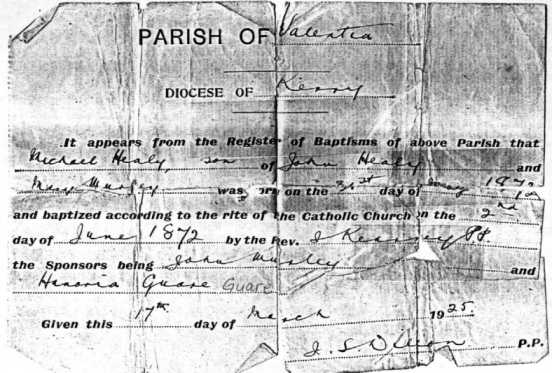 PARISH OF Valentia
DIOCESE OF Kerry
It appears from the Register of Baptisms of above Parish that
Michael Healy, son of John Healy and
Mary was born on the 31st day of 1872
and baptized according to the rite of the Catholic Church on the 2nd
day of June 1872 by the Rev. J Kearney PP
the Sponsors being John and
Hanoria Guare Guare
Given this 17th day of March 1925.
J. S. P.P.